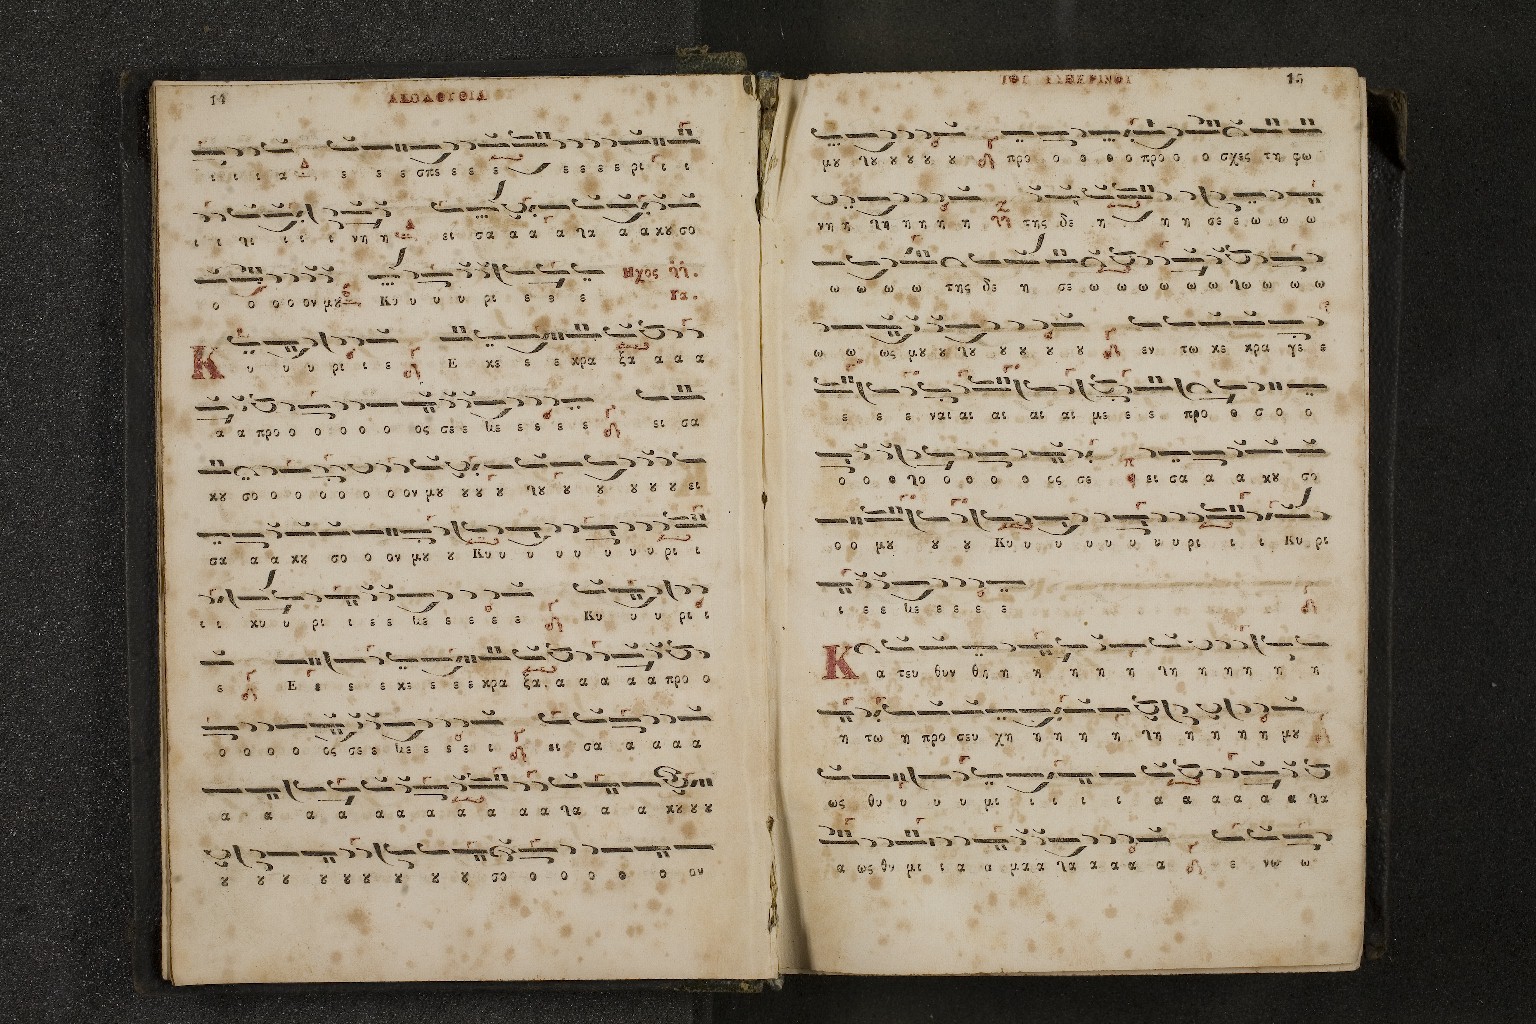 14 ΑΚΟΛΟΥΘΙΑ
ι ι ι α ε ε ε σπε ε ε ε ε ε ε ε ρι ι ι
ι ι λι ι ι ι νη η ει σα α α α λα α α κȣ σο
ο ο ο ο ον μȣ Κυ υ υ υ ρι ε ε ε Ηχος
Γα.
Κ υ υ υ ρι ι ε Ε κε ε ε κρα ξα α α α
α α προ ο ο ο ο ο ος σε ε με ε ε ε ε ει σα
κȣ σο ο ο ο ο ο ο ον μȣ ȣ ȣ ȣ λȣ ȣ ȣ ȣ ȣ ȣ ει
σα α α κȣ σο ο ον μȣ ȣ Κυ υ υ υ υ υ υ ρι ι
ι ι κυ υ ρι ι ε ε με ε ε ε ε Κυ υ υ ρι ι
ε Ε ε ε ε κε ε ε ε κρα ξα α α α α α προ ο
ο ο ο ο ος σε ε με ε ε ε ι ει σα α α α α
α α α α α α α α α α α λα α α κȣ ȣ ȣ
ȣ ȣ ȣ ȣ ȣ ȣ ȣ ȣ ȣ σο ο ο ο ο ο ον
ΤΟΥ ΕΣΠΕΡΙΝΟΥ 15
μȣ λȣ ȣ ȣ ȣ ȣ προ ο ο ο ο προ ο ο σχες τη φω
νη η λη η η η η της δε η η η σε ε ω ω ω
ω ω ω ω της δε η σε ω ω ω ω ω ω λω ω ω ω
ω ω ως μȣ ȣ λȣ ȣ ȣ ȣ ȣ εν τω κε κρα γε ε
ε ε ε ναι αι αι αι αι με ε ε προ ο σ ο ο
ο ο ο λο ο ο ο ο ος σε ει σα α α κȣ σο
ο ο μȣ ȣ ȣ Κυ υ υ υ υ υ υ ρι ι ι Κυ ρι
ι ε ε με ε ε ε ε
Κ α τευ θυν θη η η η η η λη η η η η η
η τω η προ σευ χη η η η η λη η η η η μȣ
ως θυ υ υ υ μι ι ι ι ι α α α α α α λα
α ως θυ μι ι α α μα α λα α α α α ε νω ω